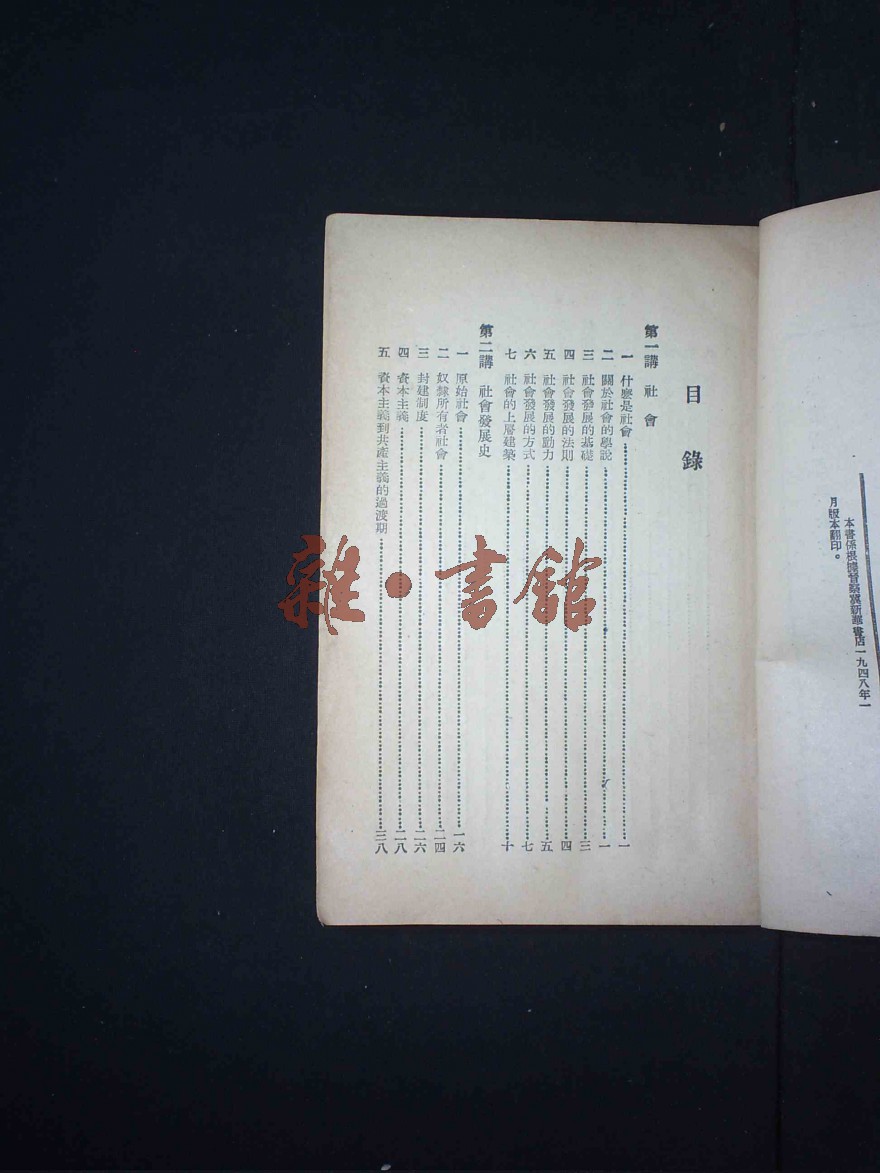 本書係根據晉察冀新華書店一九四八年一
月版本翻印。
目錄
第一講 社會
一 什麽是社會……一
二 關於社會的學說……一
三 社會發展的基礎……三
四 社會發展的法則……四
五 社會發展的動力……五
六 社會發展的方式……七
七 社會的上層建築……十
第二講 社會發展史
一 原始社會……一六
二 奴隸所有者社會……二四
三 封建制度……二六
四 資本主義……二八
五 資本主義到共產主義的過渡期……三八
雜·書館